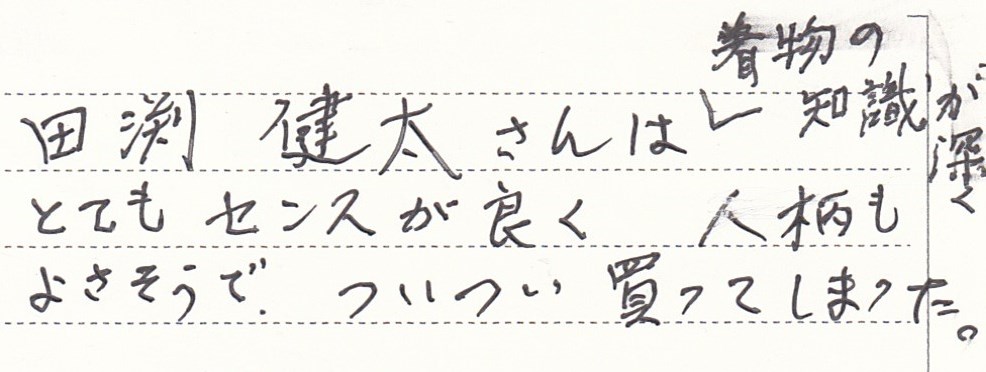 田渕 健太さんは 着物の知識が深く
とてもセンスが良く 人柄も
よさそうで、ついつい買ってしまった。